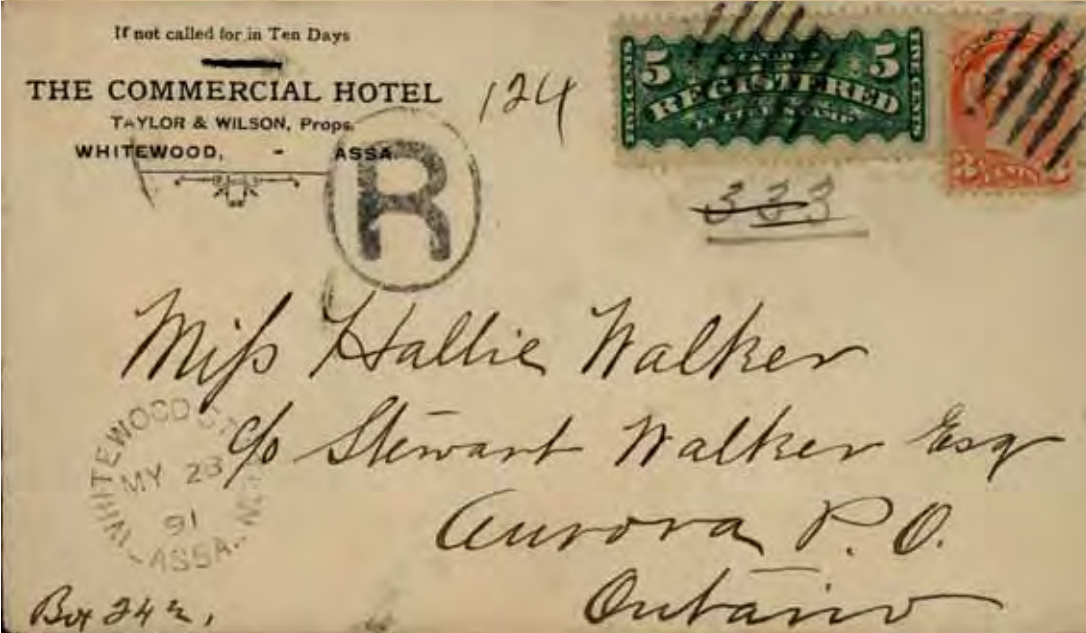 If not called for in Ten Days
THE COMMERCIAL HOTEL
TAYLOR & WILSON, Props.
WHITEWOOD, - ASSA
124
R
5 REGISTERED 5
333
Miss Hallie Walker
c/o Stewart Walker Esq
Aurora P.O.
Ontario
WHITEWOOD
MY 23
91
ASSA.
Box 242,